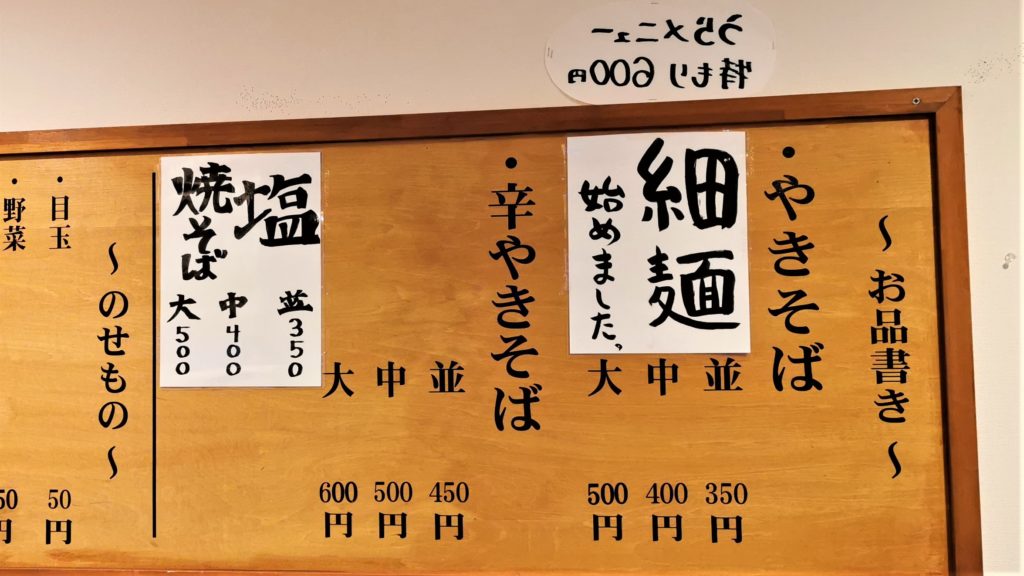 うらメニュー
特もり600円
～お品書き～
・やきそば
並 350円
中 400円
大 500円
細麺
始めました。
・辛やきそば
並 450円
中 500円
大 600円
塩
焼そば
並350
中400
大500
～のせもの～
・目玉 50円
・野菜 50円